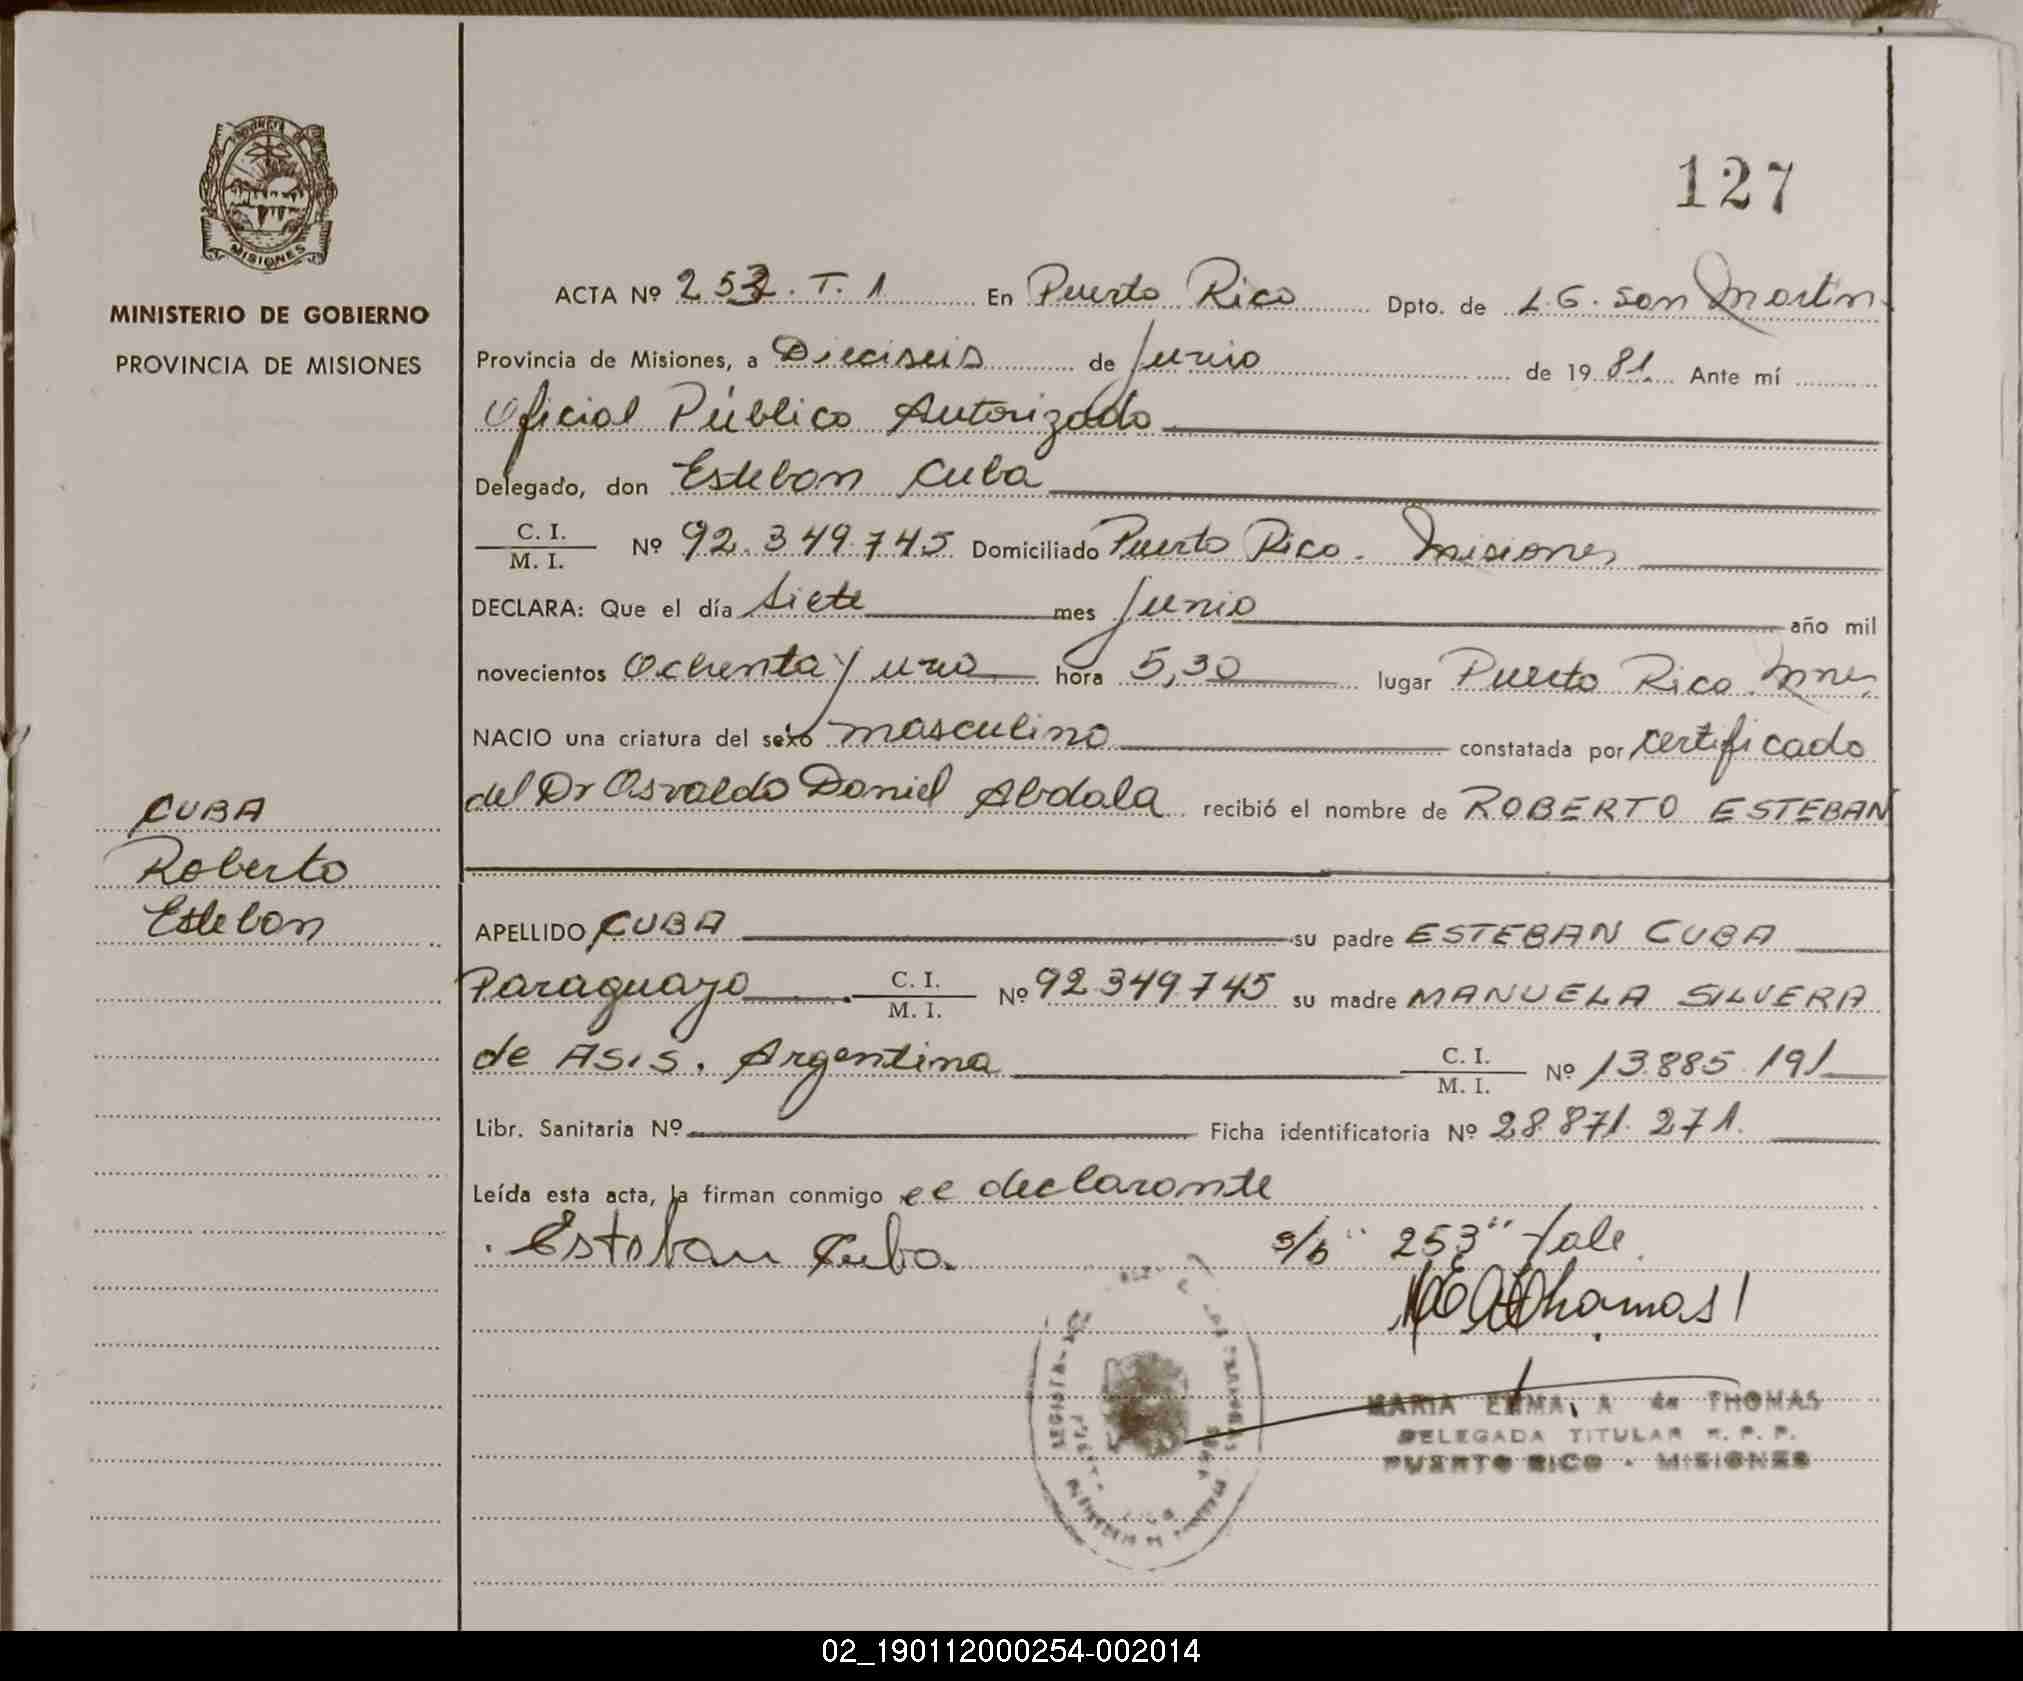 PROVINCIA DE
MISIONES
MINISTERIO DE GOBIERNO
PROVINCIA DE MISIONES
CUBA
Roberto
Esteban
127
ACTA Nº 253. T. 1 En Puerto Rico Dpto. de L.G. San Martin
Provincia de Misiones, a Dieciseis de Junio de 1981. Ante mí
Oficial Público Autorizado
Delegado, don Esteban Cuba
C. I.
M. I. Nº 92.349.745 Domiciliado Puerto Rico. Misiones
DECLARA: Que el día siete mes Junio año mil
novecientos Ochenta y uno hora 5,30 lugar Puerto Rico Mnes
NACIO una criatura del sexo masculino constatada por certificado
del Dr Osvaldo Daniel Abdala recibió el nombre de ROBERTO ESTEBAN
APELLIDO CUBA su padre ESTEBAN CUBA
Paraguayo C. I. M. I. Nº 92.349.745 su madre MANUELA SILVERA
de ASIS. Argentina C. I. M. I. Nº 13.885.191
Libr. Sanitaria Nº Ficha identificatoria Nº 28.871.271.
Leída esta acta, la firman conmigo el declarante
Esteban Cuba. s/b "253" Vale.
Thomas
MARIA EMMA A de THOMAS
DELEGADA TITULAR R. P. P.
PUERTO RICO - MISIONES
02_190112000254-002014